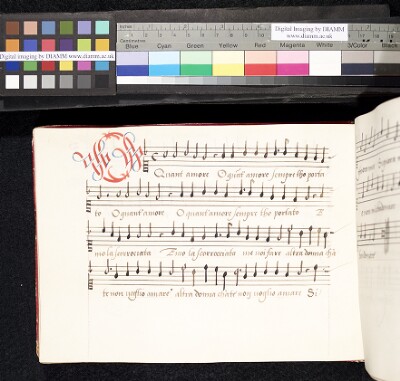 Digital Imaging by DIAMM
www.diamm.ac.uk
Digital Imaging by DIAMM
www.diamm.ac.uk
Inches
Centimetres
Blue Cyan Green Yellow Red Magenta White 3/Color Black
Quant amore O quant' amore sempre tho porta
to O quant'amore O quant'amore sempre tho portato
mo la scorrocciata mo la scorrocciata mo noi fare altra donna
te non voglio amare altra donna non voglio amare